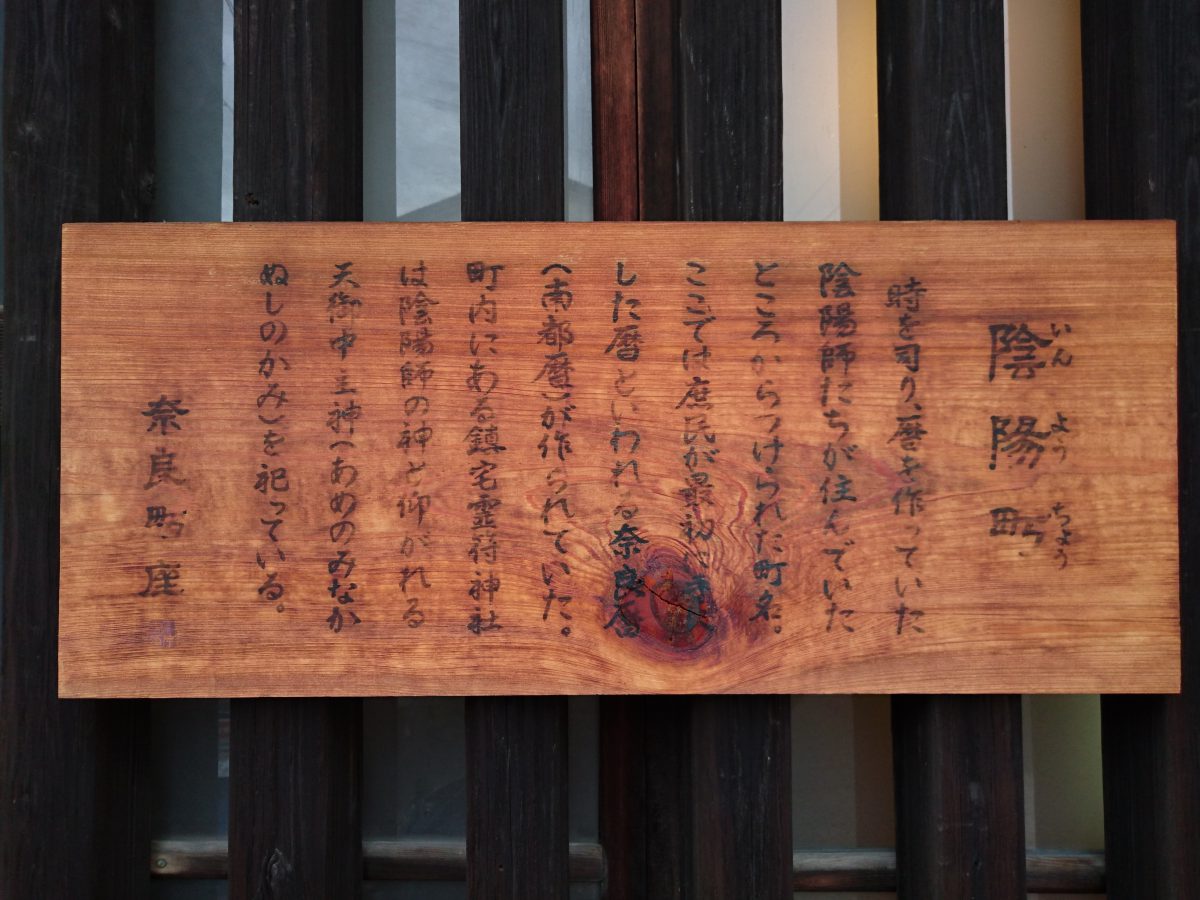 陰陽町
いん よう ちょう
時を司り、暦を作っていた
陰陽師たちが住んでいた
ところからつけられた町名。
ここでは庶民が最初に手に
した暦といわれる奈良暦
(南都暦)が作られていた。
町内にある鎮宅霊符神社
は陰陽師の神と仰がれる
天御中主神(あめのみなか
ぬしのかみ)を祀っている。
奈良町座